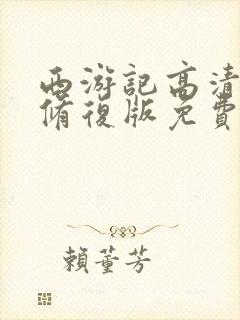 西游記高清
脩復版免費
賴董芳